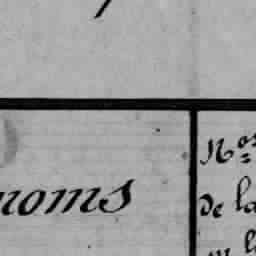 noms
Nos
de la